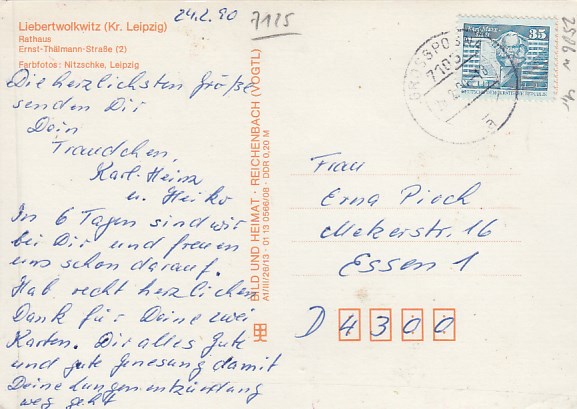 24.2.90
7125
Liebertwolkwitz (Kr. Leipzig)
Rathaus
Ernst-Thälmann-Straße (2)
Farbfotos: Nitzsche, Leipzig
Die herzlichsten Grüße
senden Dir
Dein
Traudchen,
Karl-Heinz
u. Heiko
In 6 Tagen sind wir
bei Dir und freuen
uns schon darauf.
Hab recht herzlichen
Dank für Deine zwei
Karten. Dir alles Gute
und gute Genesung damit
Deine Lungenentzündung
weg geht
BILD UND HEIMAT · REICHENBACH (VOGTL)
A1/III/26/13 · 01 13 0566/08 · DDR 0,20 M
35
GROSSPO
7105
Frau
Erna Pioch
Metzerstr. 16
Essen 1
D 4300